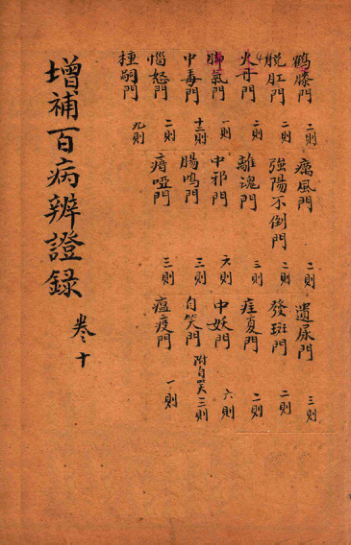 鶴膝門 二則 癘風門 二則 遺尿門 三則
脫肛門 二則 強陽不倒門 二則 發斑門 二則
火丹門 二則 離魂門 三則 疰夏門 二則
脚氣門 一則 中邪門 六則 中妖門 六則
中毒門 十二則 腸鳴門 三則 自笑門 附自哭三則
惱怒門 二則 瘖啞門 三則 瘟疫門 一則
種嗣門 九則
增補百病辨證録 卷十